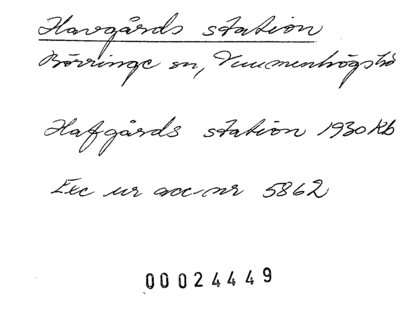 Havgårds station
Börringe sn, Vemmenhögs hd
Hafgårds station 1930 Kb
Exc ur acc-nr 5862
00024449